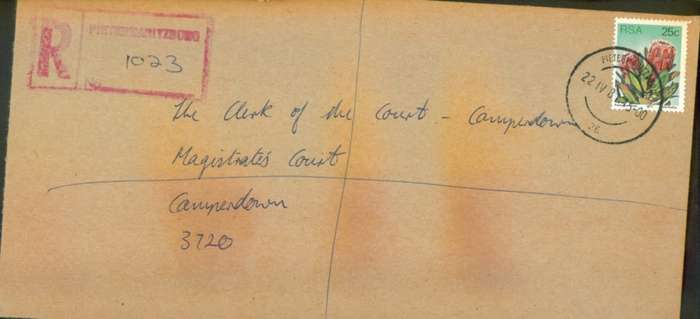 R PIETERMARITZBURG
No. 1023
RSA 25c
22 IV 8
The Clerk of the Court - Camperdown
Magistrate's Court
Camperdown
3720